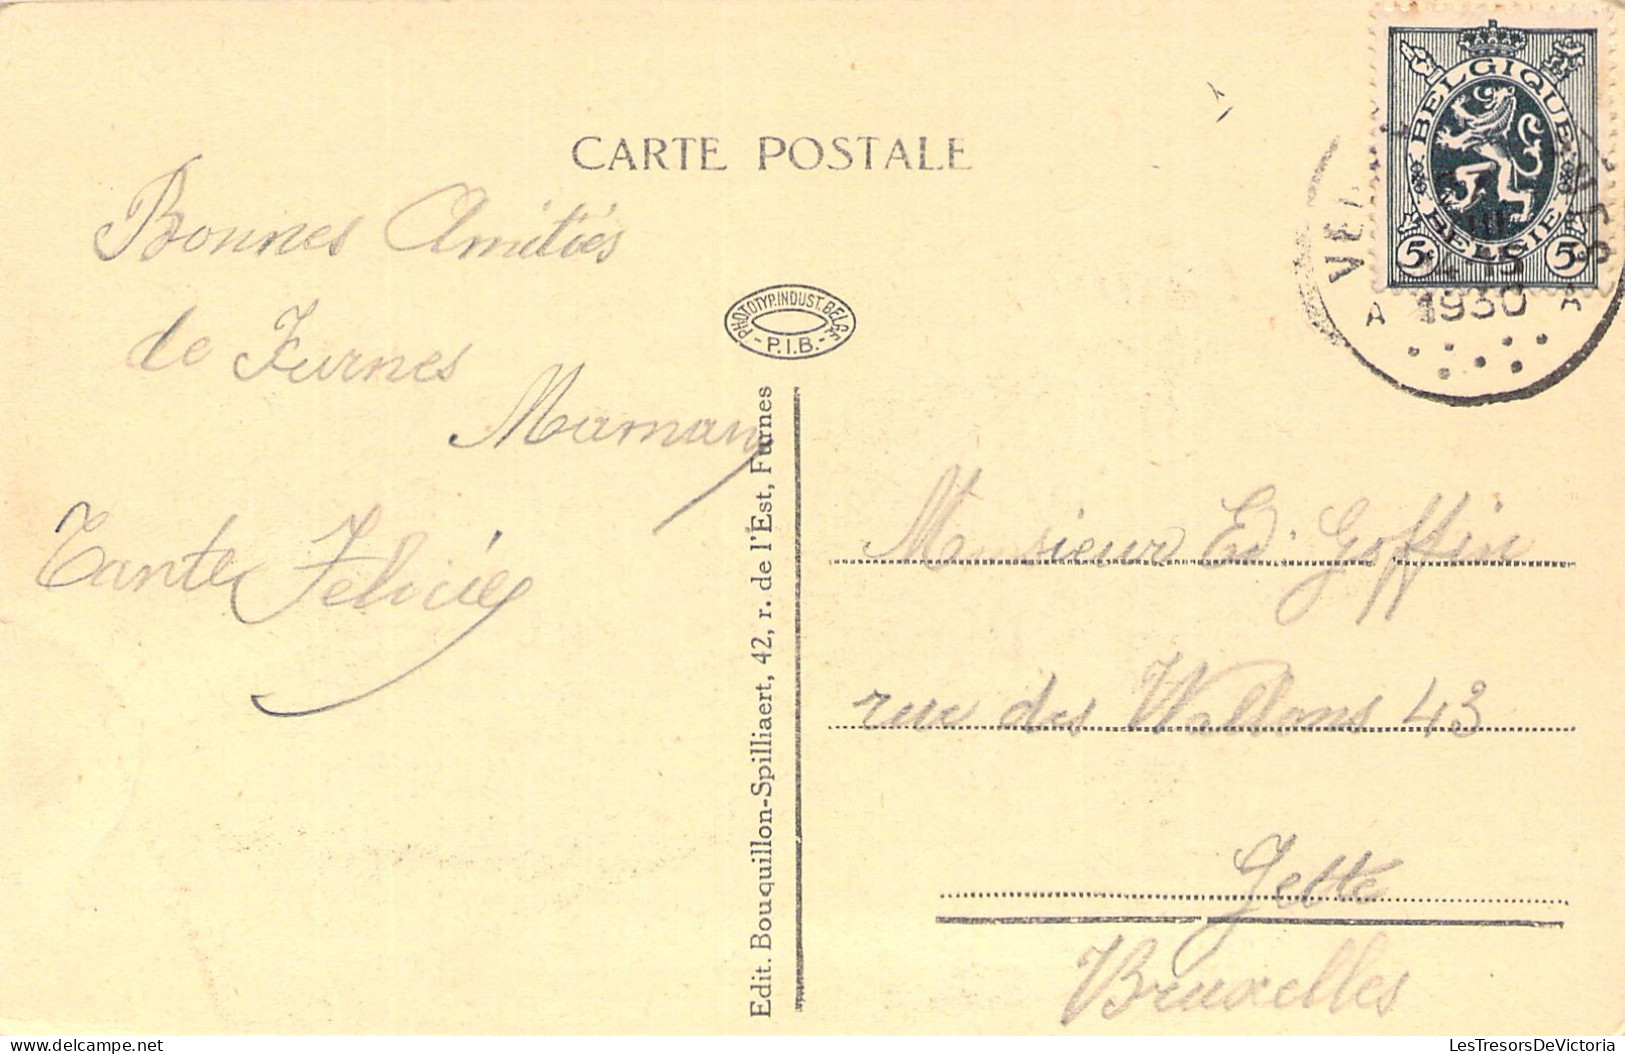 CARTE POSTALE
Bonnes Amitiés
de Furnes
Maman
Tante Félicie
PHOTOTYP. INDUST. BELGE
- P.I.B. -
Edit. Bouquillon-Spilliaert, 42, r. de l'Est, Furnes
BELGIQUE
BELGIE
5c 5c
VEU
NES
III
14-15
1930
A A
Monsieur Ed. Goffin
rue des Wallons 43
Jette
Bruxelles
LesTresorsDeVictoria - delcampe.net